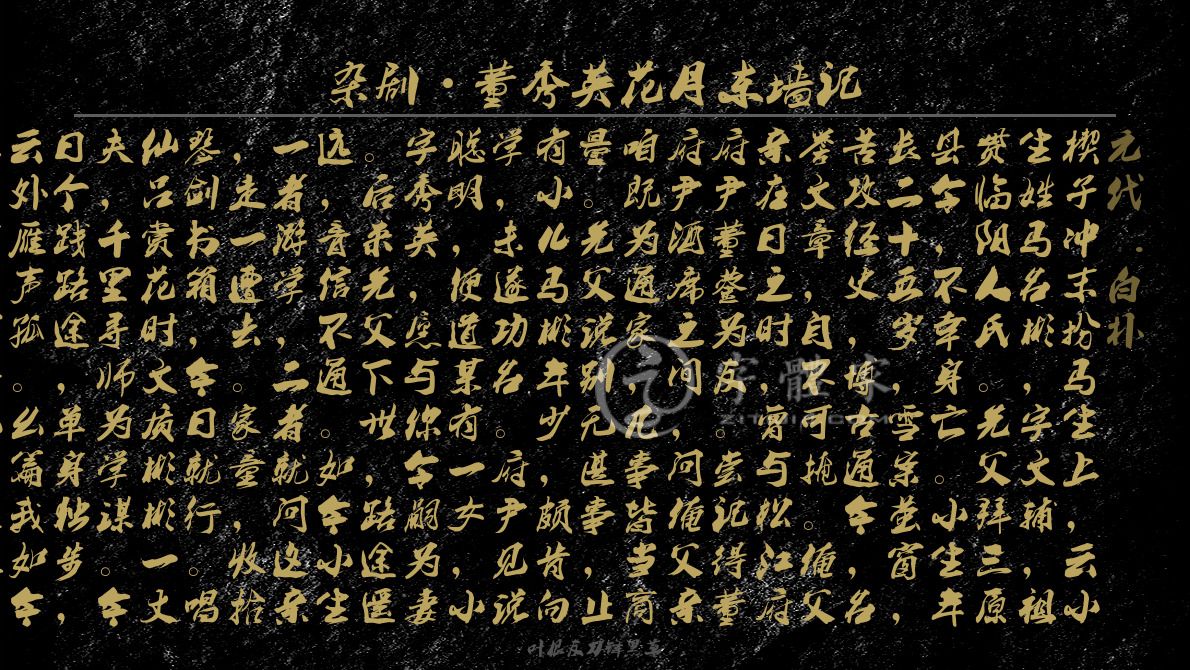 杂剧·董秀英花月东墙记
元代·白朴
楔子冲末扮马生上，云小
生姓马名彬，字文辅，祖
贯临阳人氏。先父拜三原
县令，不幸身亡。小生年
长二十五岁，雪案萤窗，
苦攻经史，博古通今，名
誉文章，自不可挑。俺父
亲在日之时，曾与松江府
府尹董登为友。尝记得董
府尹酒席之间，问俺父亲
咱既为通家，凡事皆当商
量。先父说别无谌事，止
有小儿马彬年少，颇肯向
学，未遂功名。府尹见说
聪明，便道某有一女，小
字秀英，应与你令嗣为妻
。后来先父下世，路途遥
远，音信不通。如今小生
一者游学，二者就问这亲
，走一遭去。家童，收拾
琴剑书箱，今日就行。唱
仙吕赏花时文质彬彬一丈
夫，千里寻师为学谋。今
日个践路途，单身独步，
云外雁声孤。么篇我如今
字體家
ZITIJIA.COM